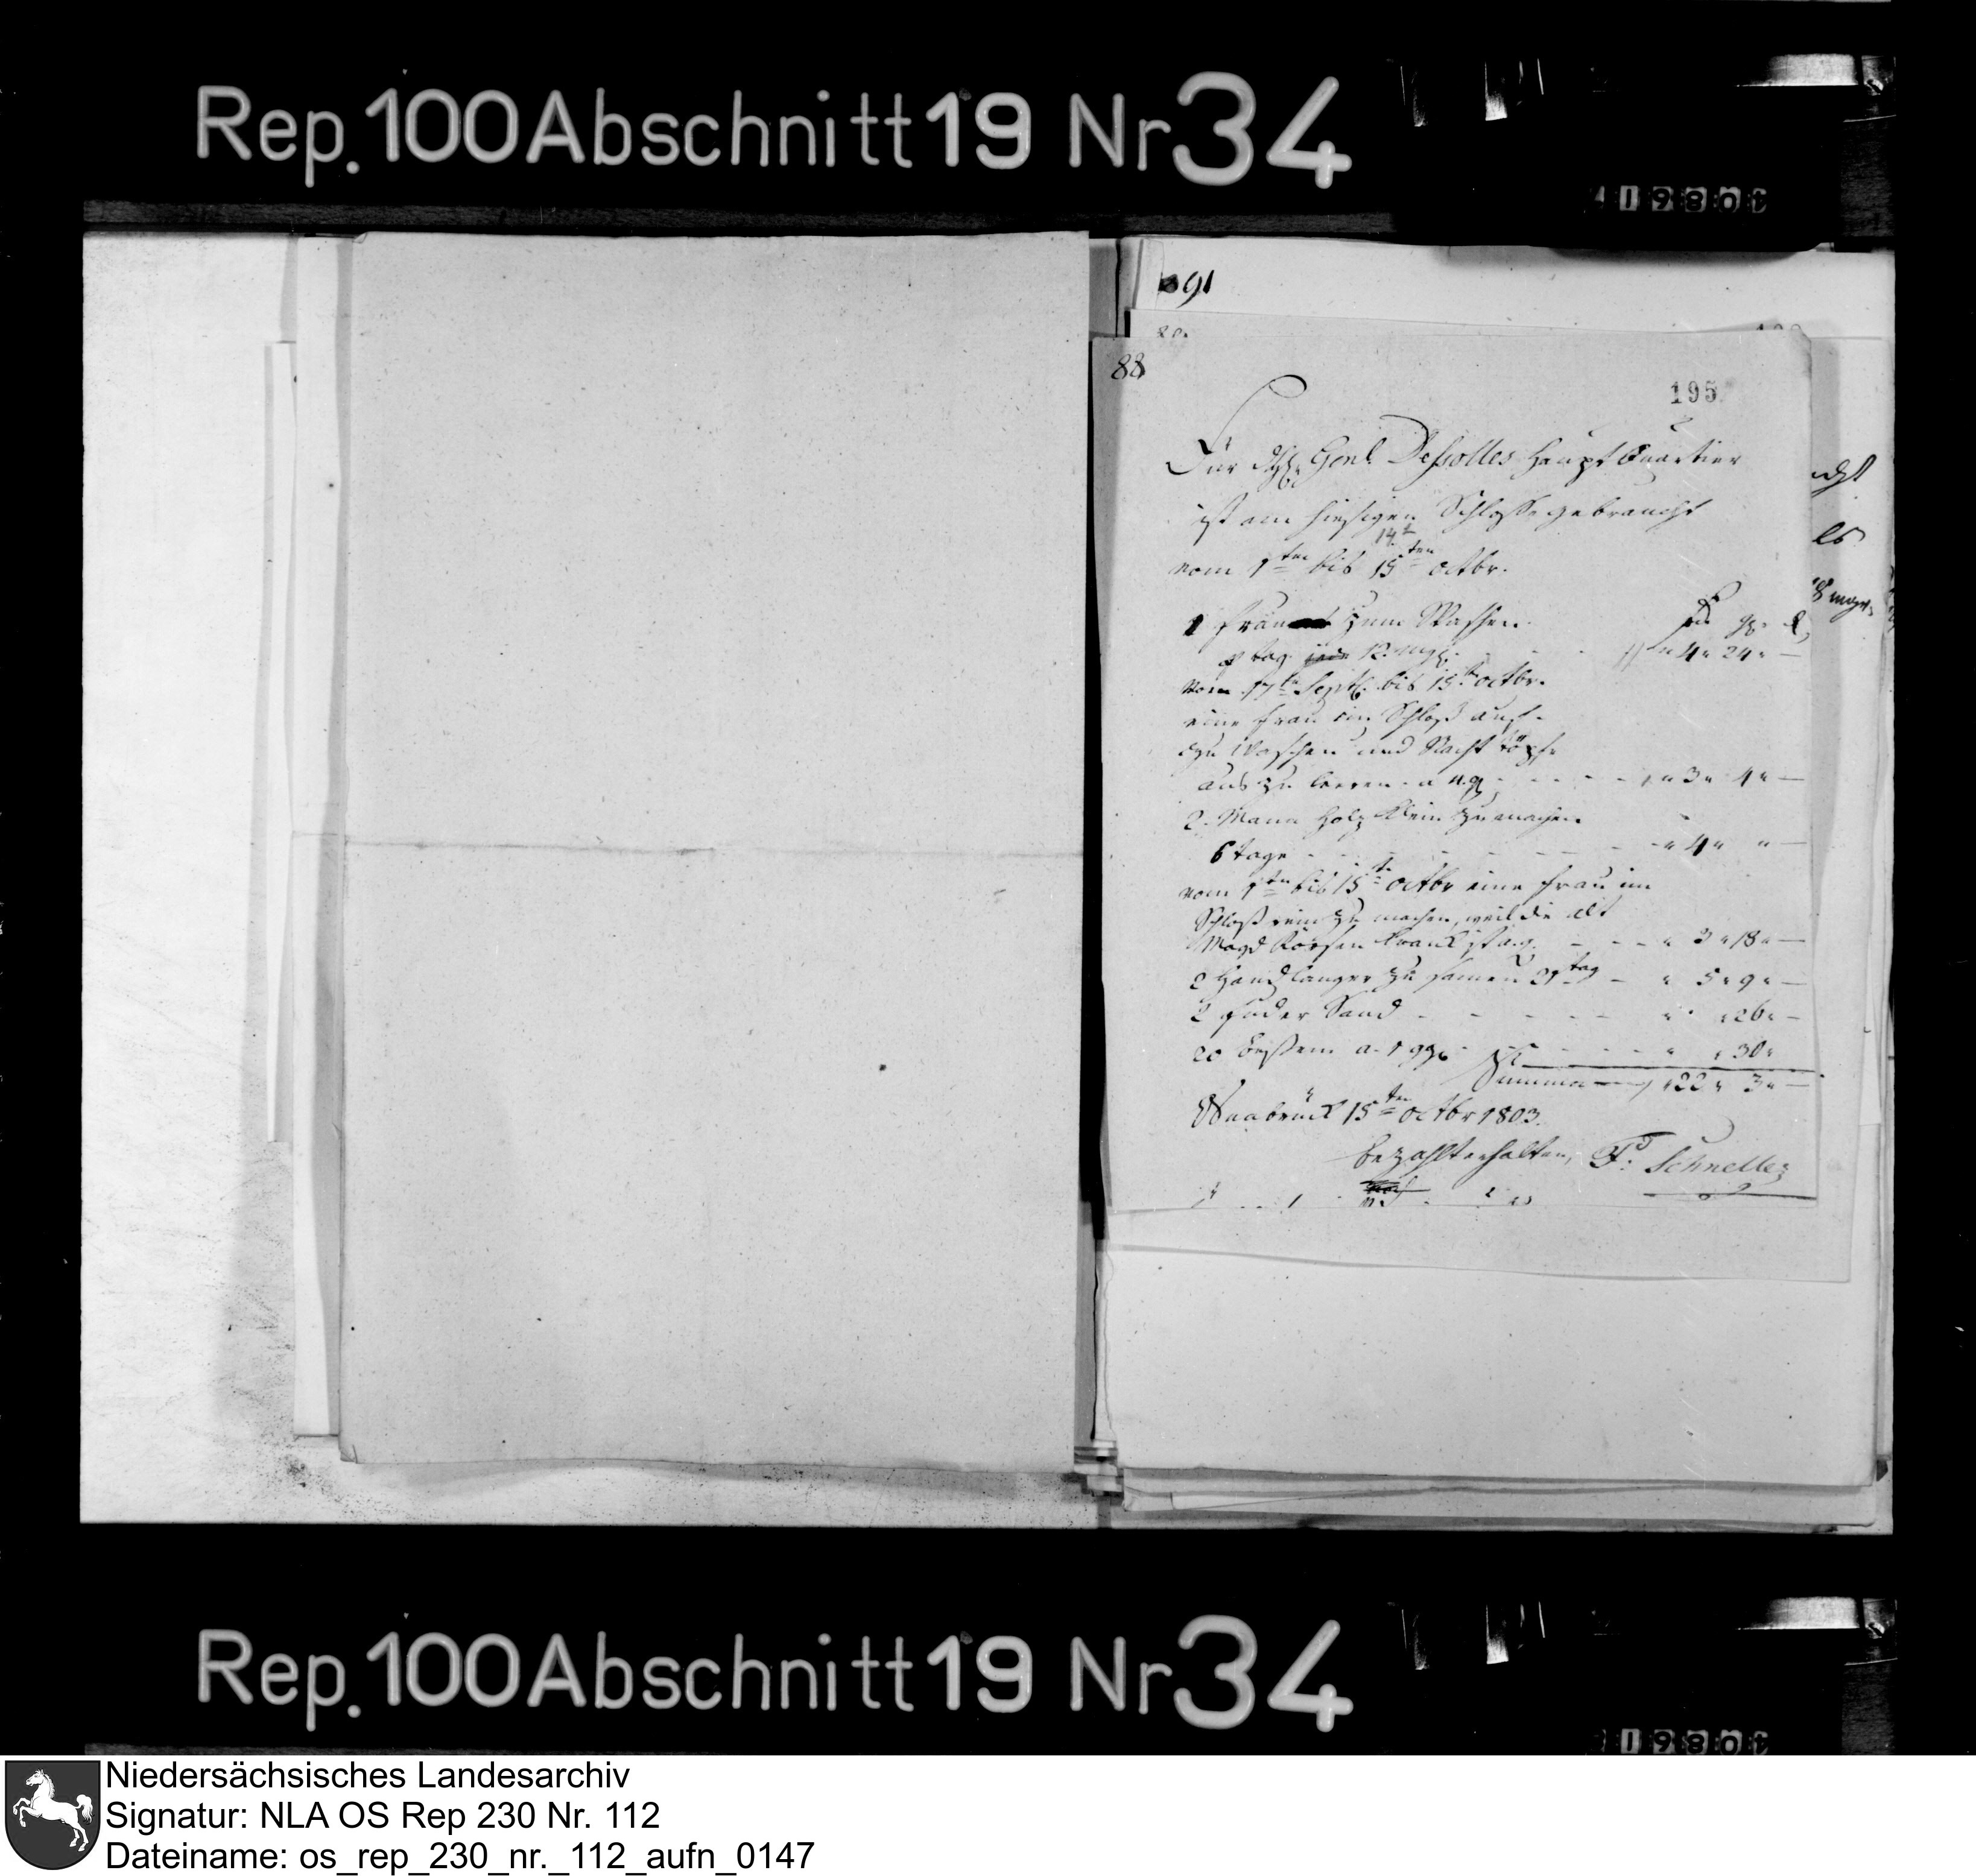 Rep.100 Abschnitt 19 Nr 34
91
88
195
Für Genl. Dessolles Haupt Quartier
ist am hiesigen Schlosse gebraucht
14t
vom 1ten bis 15ten octbr.
1 Frau zum Waschen.
p tag 12 mgr. 4 " 24 " —
vom 17ten Sept. bis 15t octbr.
eine Frau im Schloß auf-
zu Waschen und Nacht töpfe
aus zu leeren a 4 g " 3 " 4 " —
2 Mann Holz klein zu machen
6 tage " 4 " " —
vom 1ten bis 15t octbr eine Frau im
Schloß rein zu machen, weil die alt
Magd krank ist " 3 " 18 " —
2 Handlanger zu samen 21 tag — " 5 " 9 " —
2 Fuder Sand " " 26 " —
20 Beßem a. 1 ggr " " 30 "
Summa — " 22 " 3 " —
Osnabrück 15ten octbr 1803.
bezahlt erhalten, F: Schneller
Rep.100 Abschnitt 19 Nr 34
Niedersächsisches Landesarchiv
Signatur: NLA OS Rep 230 Nr. 112
Dateiname: os_rep_230_nr._112_aufn_0147